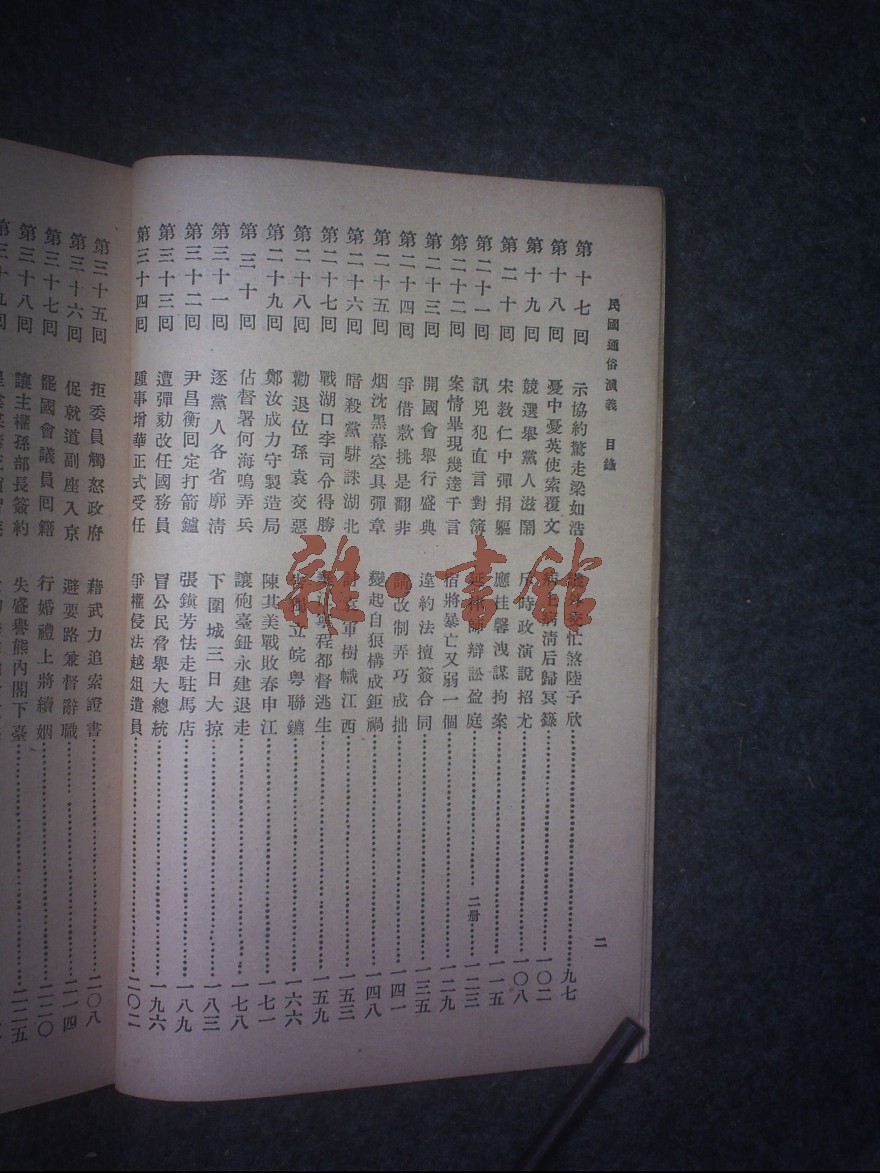 民國通俗演義 目錄
二
第十七回 示協約驚走梁如浩 交忙煞陸子欣 九七
第十八回 憂中憂英使索覆文 病上病清后歸冥籙 一〇二
第十九回 競選舉黨人滋鬧 斥時政演說招尤 一〇八
第二十回 宋教仁中彈捐軀 應桂馨洩謀拘案 一一五
第二十一回 訊兇犯直言對簿 延律師辯訟盈庭 二册 一二三
第二十二回 案情畢現幾達千言 宿將暴亡又弱一個 一二九
第二十三回 開國會舉行盛典 違約法擅簽合同 一三五
第二十四回 爭借款挑是翻非 請改制弄巧成拙 一四一
第二十五回 烟沈黑幕空具彈章 變起白狼構成鉅禍 一四八
第二十六回 暗殺黨駢誅湖北 討袁軍樹幟江西 一五三
第二十七回 戰湖口李司令得勝 寧程都督逃生 一五九
第二十八回 勸退位孫袁交惡 告獨立皖粵聯鑣 一六六
第二十九回 鄭汝成力守製造局 陳其美戰敗春申江 一七一
第三十回 佔督署何海鳴弄兵 讓砲臺鈕永建退走 一七八
第三十一回 逐黨人各省廓清 下圍城三日大掠 一八三
第三十二回 尹昌衡回定打箭鑪 張鎮芳怯走駐馬店 一八九
第三十三回 遭彈劾改任國務員 冒公民脅舉大總統 一九六
第三十四回 踵事增華正式受任 爭權侵法越俎遣員 二〇二
第三十五回 拒委員觸怒政府 藉武力追索證書 二〇八
第三十六回 促就道副座入京 避要路兼督辭職 二一四
第三十七回 罷國會議員回籍 行婚禮上將續姻 二二〇
第三十八回 讓主權孫部長簽約 失盛譽熊內閣下臺 二二五
第三十九回
雜·書館